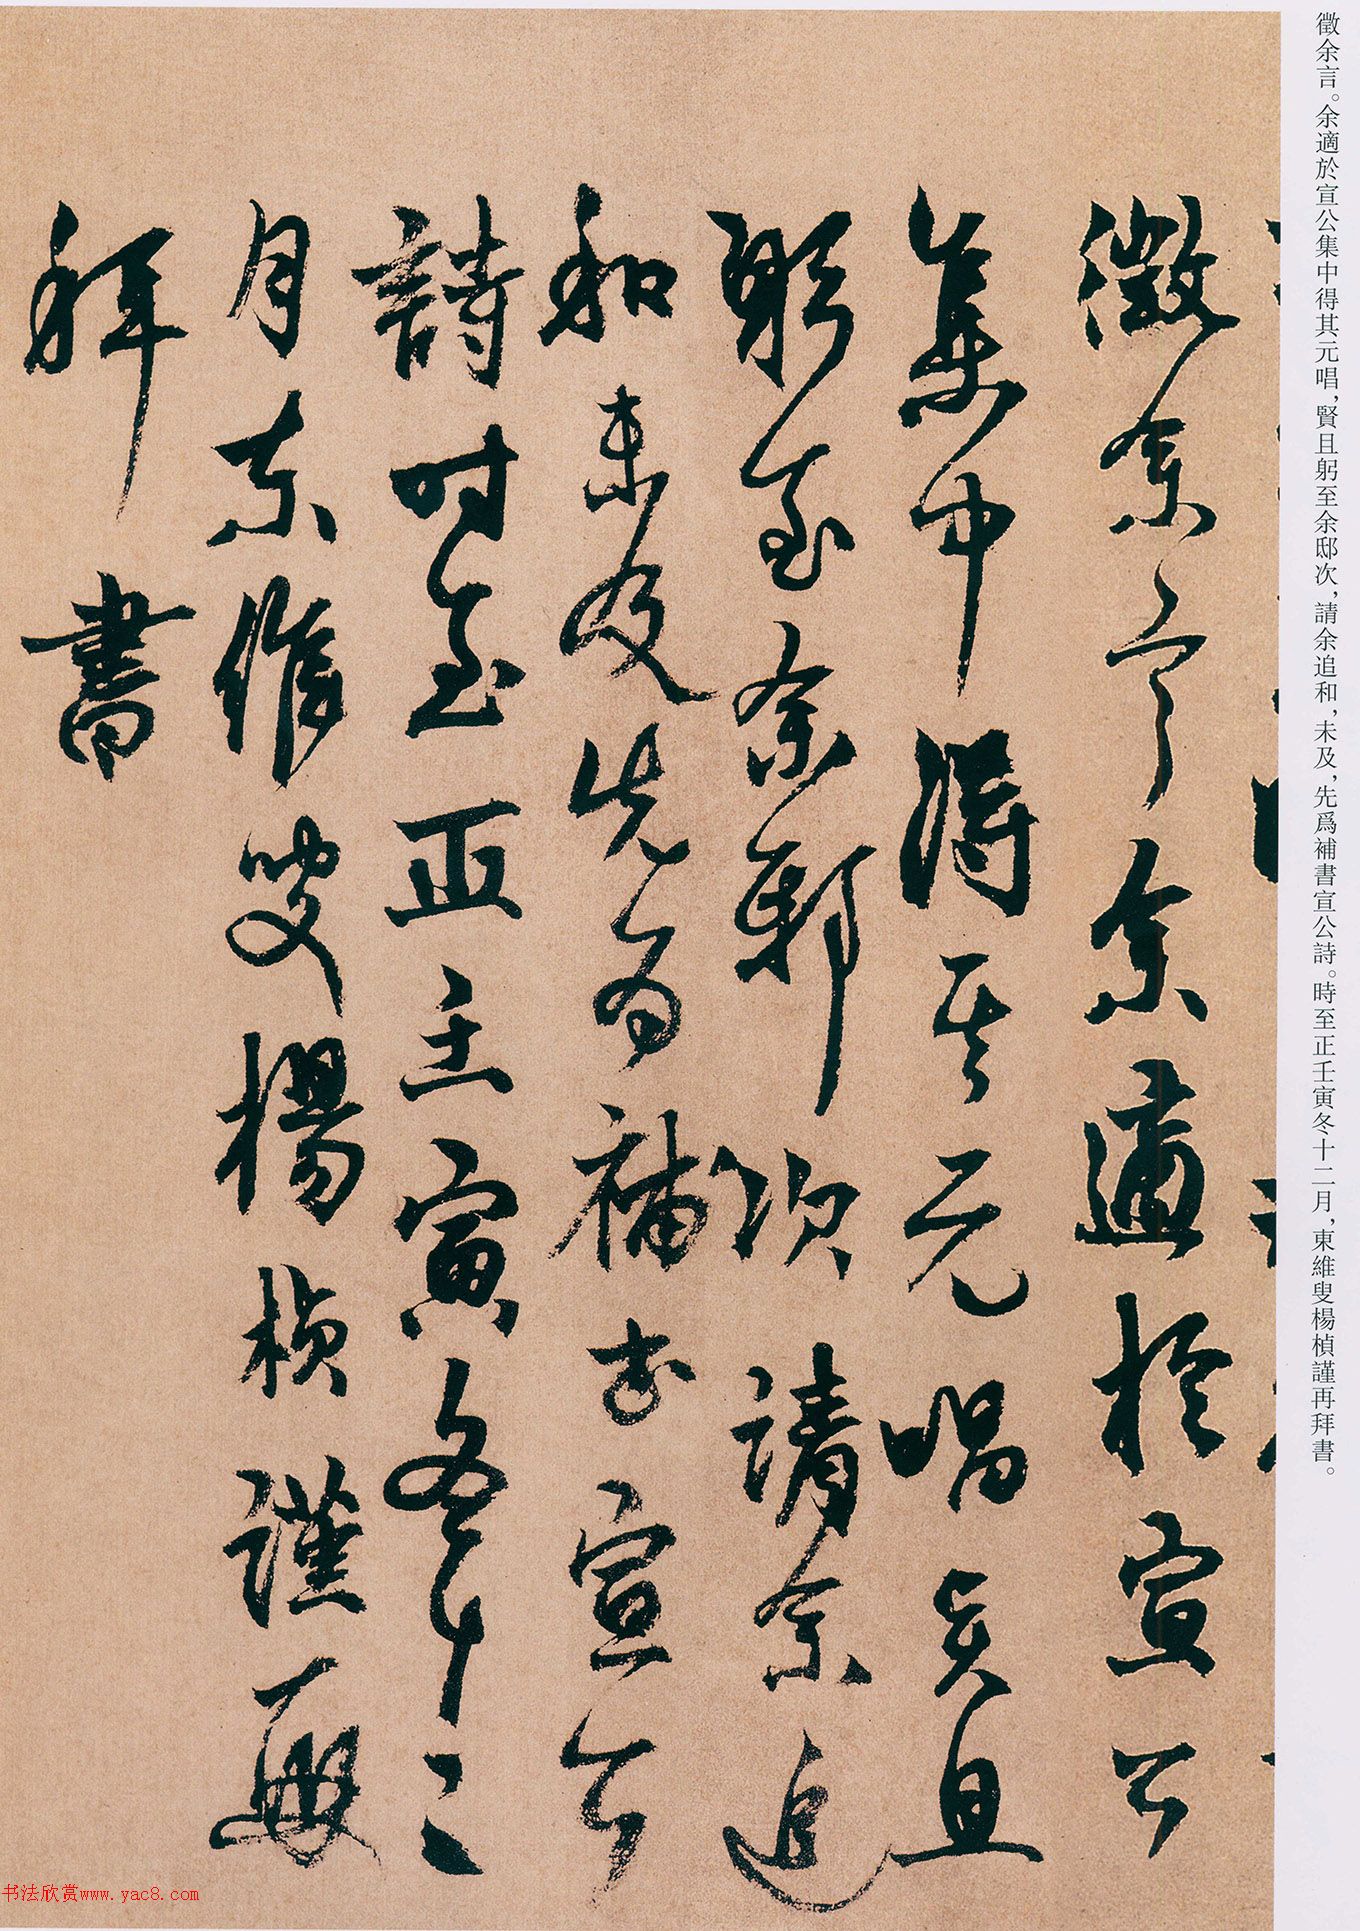 徵余言。余適於宣公集中得其元唱，賢且躬至余邸次，請余追和，未及，先爲補書宣公詩。時至正壬寅冬十二月，東維叟楊楨謹再拜書。
徵余言余適於宣公
集中得其元唱賢且
躬至余邸次請余追
和未及先爲補書宣公
詩時至正壬寅冬十二
月東維叟楊楨謹再
拜書
书法欣赏www.yac8.com